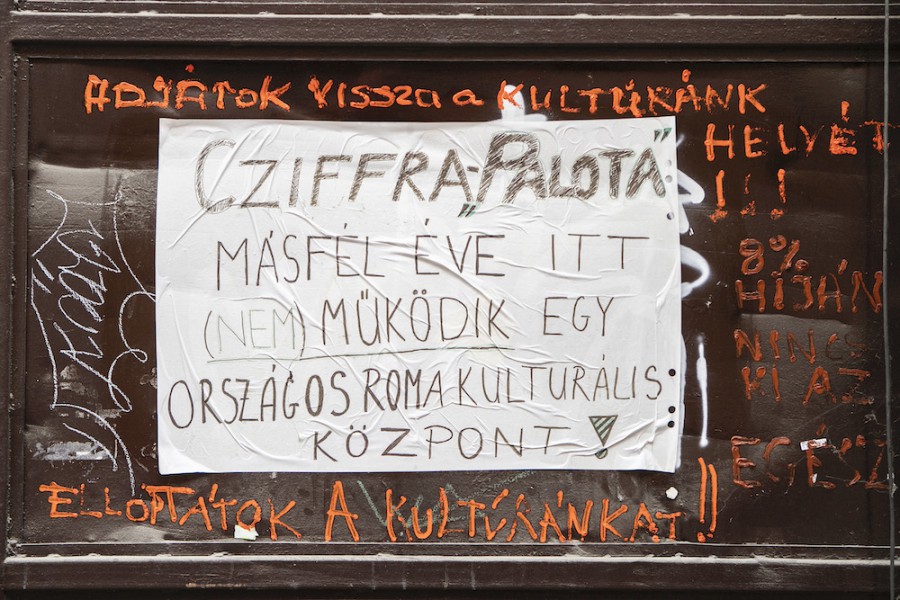 ADJÁTOK VISSZA A KULTÚRÁNK
HELYÉT
!!!
CZIFFRA-„PALOTA”
MÁSFÉL ÉVE ITT
(NEM) MŰKÖDIK EGY
ORSZÁGOS ROMA KULTURÁLIS
KÖZPONT!
8%
HÍJÁN
NINCS
KI AZ
EGÉSZ
ELLOPTÁTOK A KULTÚRÁNKAT!!